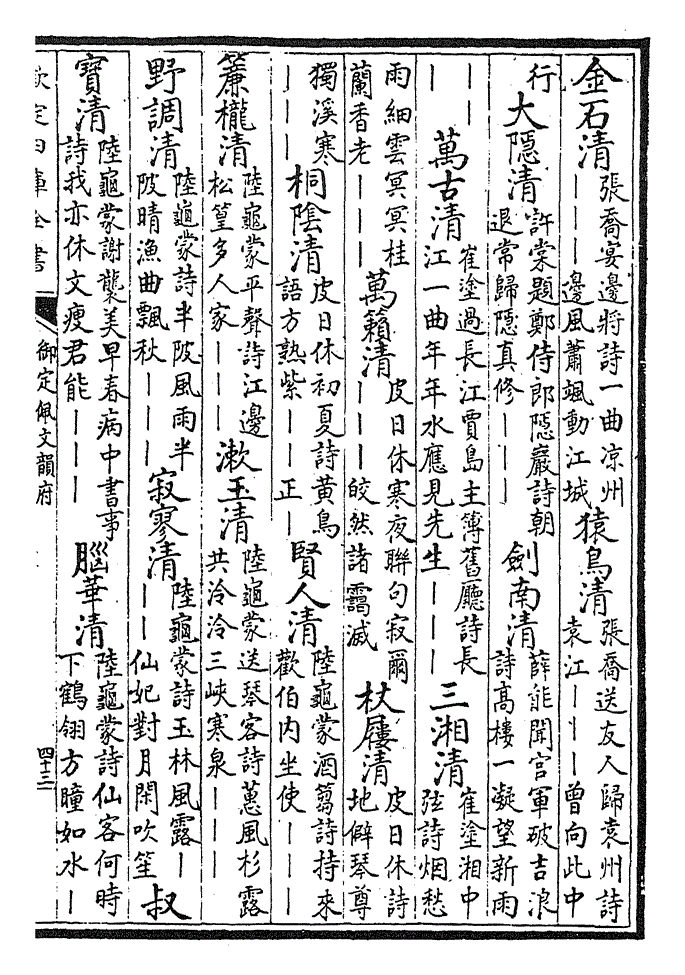 金石清張喬宴邊將詩一曲凉州｜｜｜邊風蕭颯動江城猿鳥清張喬送友人歸袁州詩袁江｜｜｜曾向此中
行大隱清許棠題鄭侍郎隱巖詩朝退常歸隱真修｜｜｜劍南清薛能聞官軍破吉浪詩高樓一凝望新雨
｜｜｜萬古清崔塗過長江賈島主簿舊廳詩長江一曲年年水應見先生｜｜｜三湘清崔塗湘中弦詩烟愁
雨細雲冥冥桂蘭香老｜｜｜萬籟清皮日休寒夜聯句寂爾｜｜｜皎然諸靄滅杖屨清皮日休詩地僻琴尊
獨溪寒｜｜｜桐陰清皮日休初夏詩黃鳥語方熟紫｜｜正｜賢人清陸龜蒙酒篘詩持來歡伯内坐使｜｜｜
簾櫳清陸龜蒙平聲詩江邊松篁多人家｜｜｜漱玉清陸龜蒙送琴客詩蕙風杉露共泠泠三峽寒泉｜｜｜
野調清陸龜蒙詩半陂風雨半陂晴漁曲飄秋｜｜｜寂寥清陸龜蒙詩玉林風露｜｜｜仙妃對月閑吹笙叔
寶清陸龜蒙謝襲美早春病中書事詩我亦休文瘦君能｜｜｜腦華清陸龜蒙詩仙客何時下鶴翎方瞳如水｜
欽定四庫全書
御定佩文韻府
四十三